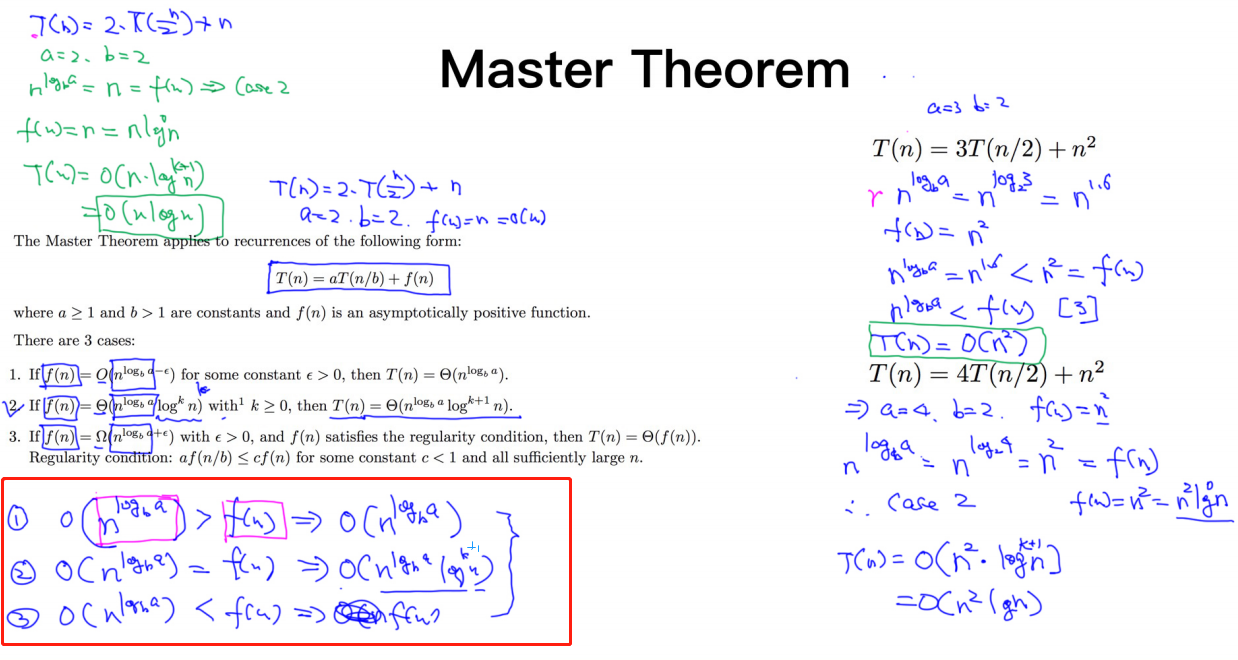 T(n) = 2·T(n/2) + n
a=2. b=2
n^{log_b a} = n = f(n) ⇒ Case 2
f(n) = n = n lg^0 n
T(n) = O(n·log^{k+1} n)
= O(n log n)
Master Theorem
T(n) = 2·T(n/2) + n
a=2. b=2. f(n) = n = O(n)
The Master Theorem applies to recurrences of the following form:
T(n) = aT(n/b) + f(n)
where a ≥ 1 and b > 1 are constants and f(n) is an asymptotically positive function.
There are 3 cases:
1. If f(n) = O(n^{log_b a−ϵ}) for some constant ϵ > 0, then T(n) = Θ(n^{log_b a}).
k
2. If f(n) = Θ(n^{log_b a} log^k n) with¹ k ≥ 0, then T(n) = Θ(n^{log_b a} log^{k+1} n).
3. If f(n) = Ω(n^{log_b a+ϵ}) with ϵ > 0, and f(n) satisfies the regularity condition, then T(n) = Θ(f(n)).
Regularity condition: af(n/b) ≤ cf(n) for some constant c < 1 and all sufficiently large n.
① O(n^{log_b a}) > f(n) ⇒ O(n^{log_b a})
② O(n^{log_b a}) = f(n) ⇒ O(n^{log_b a} log^{k+1} n)
③ O(n^{log_b a}) < f(n) ⇒ f(n)
a=3 b=2
T(n) = 3T(n/2) + n²
r n^{log_b a} = n^{log_2 3} = n^{1.6}
f(n) = n²
n^{log_b a} = n^{1.6} < n² = f(n)
n^{log_b a} < f(n) [3]
T(n) = O(n²)
T(n) = 4T(n/2) + n²
⇒ a=4. b=2. f(n) = n²
n^{log_b a} = n^{log_2 4} = n² = f(n)
∴ Case 2 f(n) = n² = n² lg^0 n
T(n) = O(n²·log^{k+1} n]
= O(n² lgn)